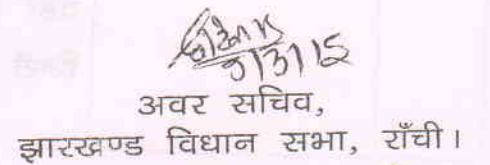 9/3/15
अवर सचिव,
झारखण्ड विधान सभा, राँची।